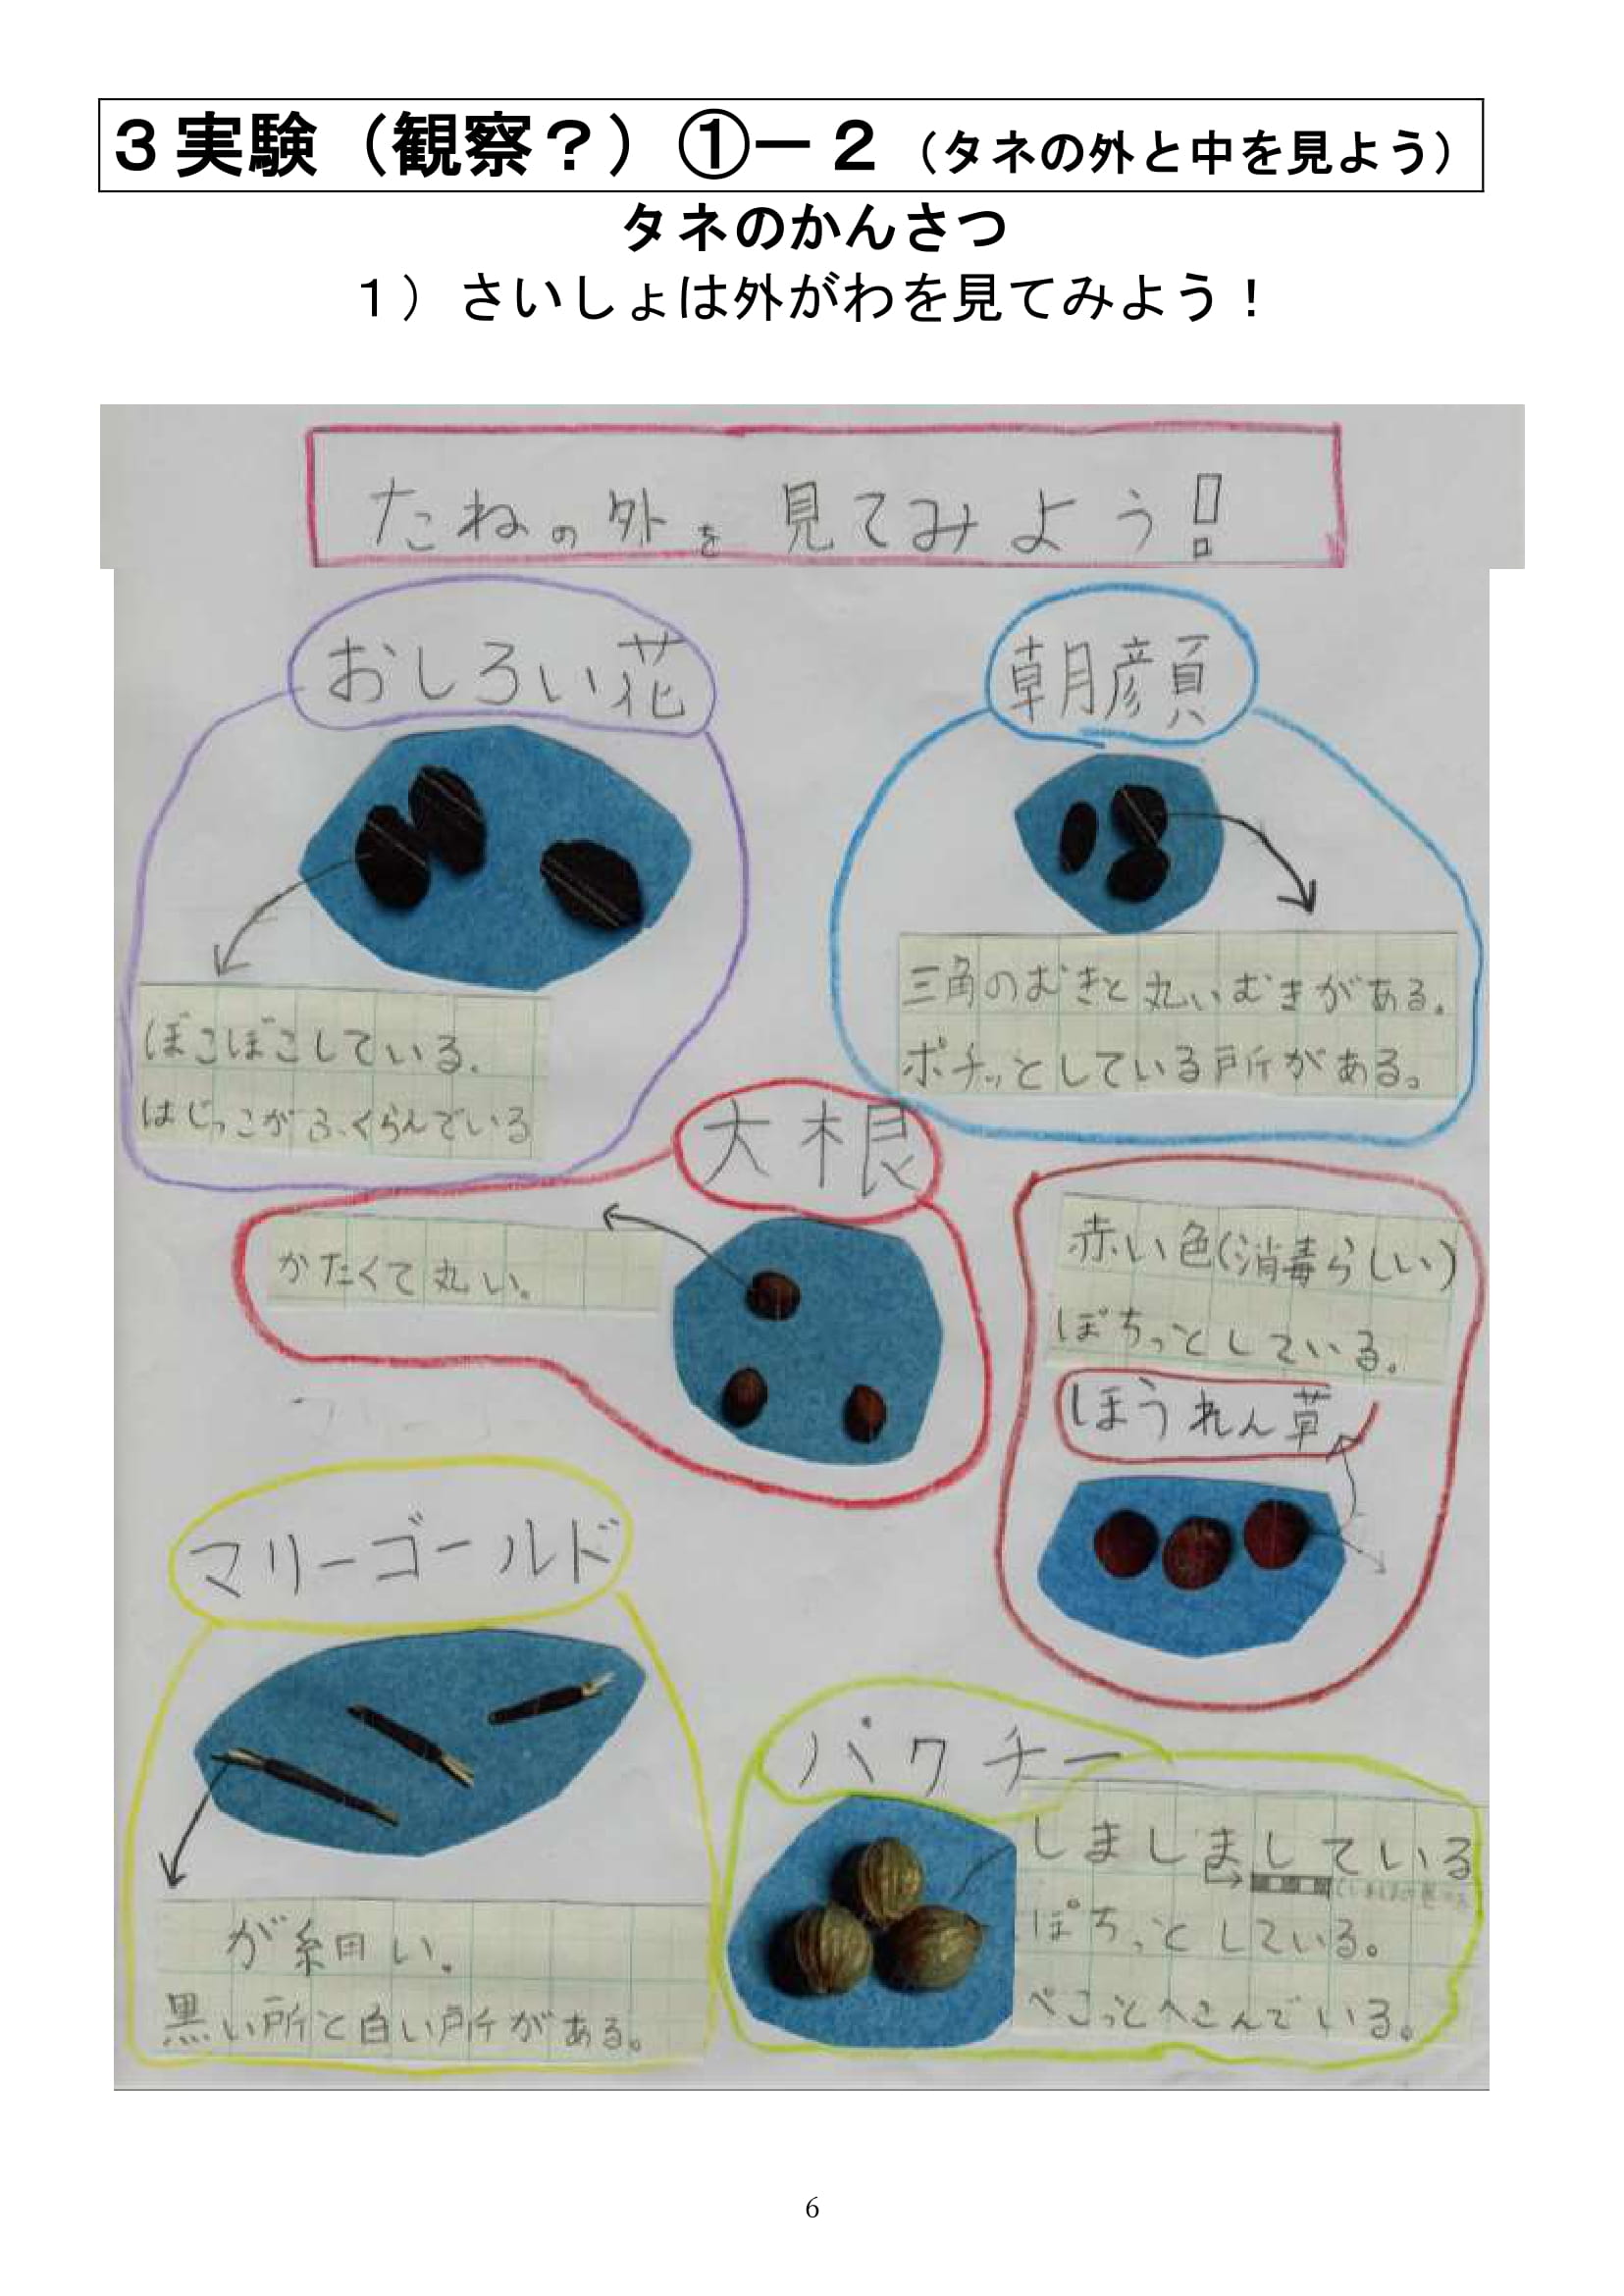 ３実験（観察？）①－２（タネの外と中を見よう）
タネのかんさつ
１）さいしょは外がわを見てみよう！
たねの外を見てみよう！
おしろい花
ぼこぼこしている。
はじっこがふくらんでいる
朝顔
三角のむきと丸いむきがある。
ポチッとしている所がある。
大根
かたくて丸い。
赤い色(消毒らしい)
ぽちっとしている。
ほうれん草
マリーゴールド
が細い。
黒い所と白い所がある。
パクチー
しましましている
ぽちっとしている。
ぺこっとへこんでいる。
6